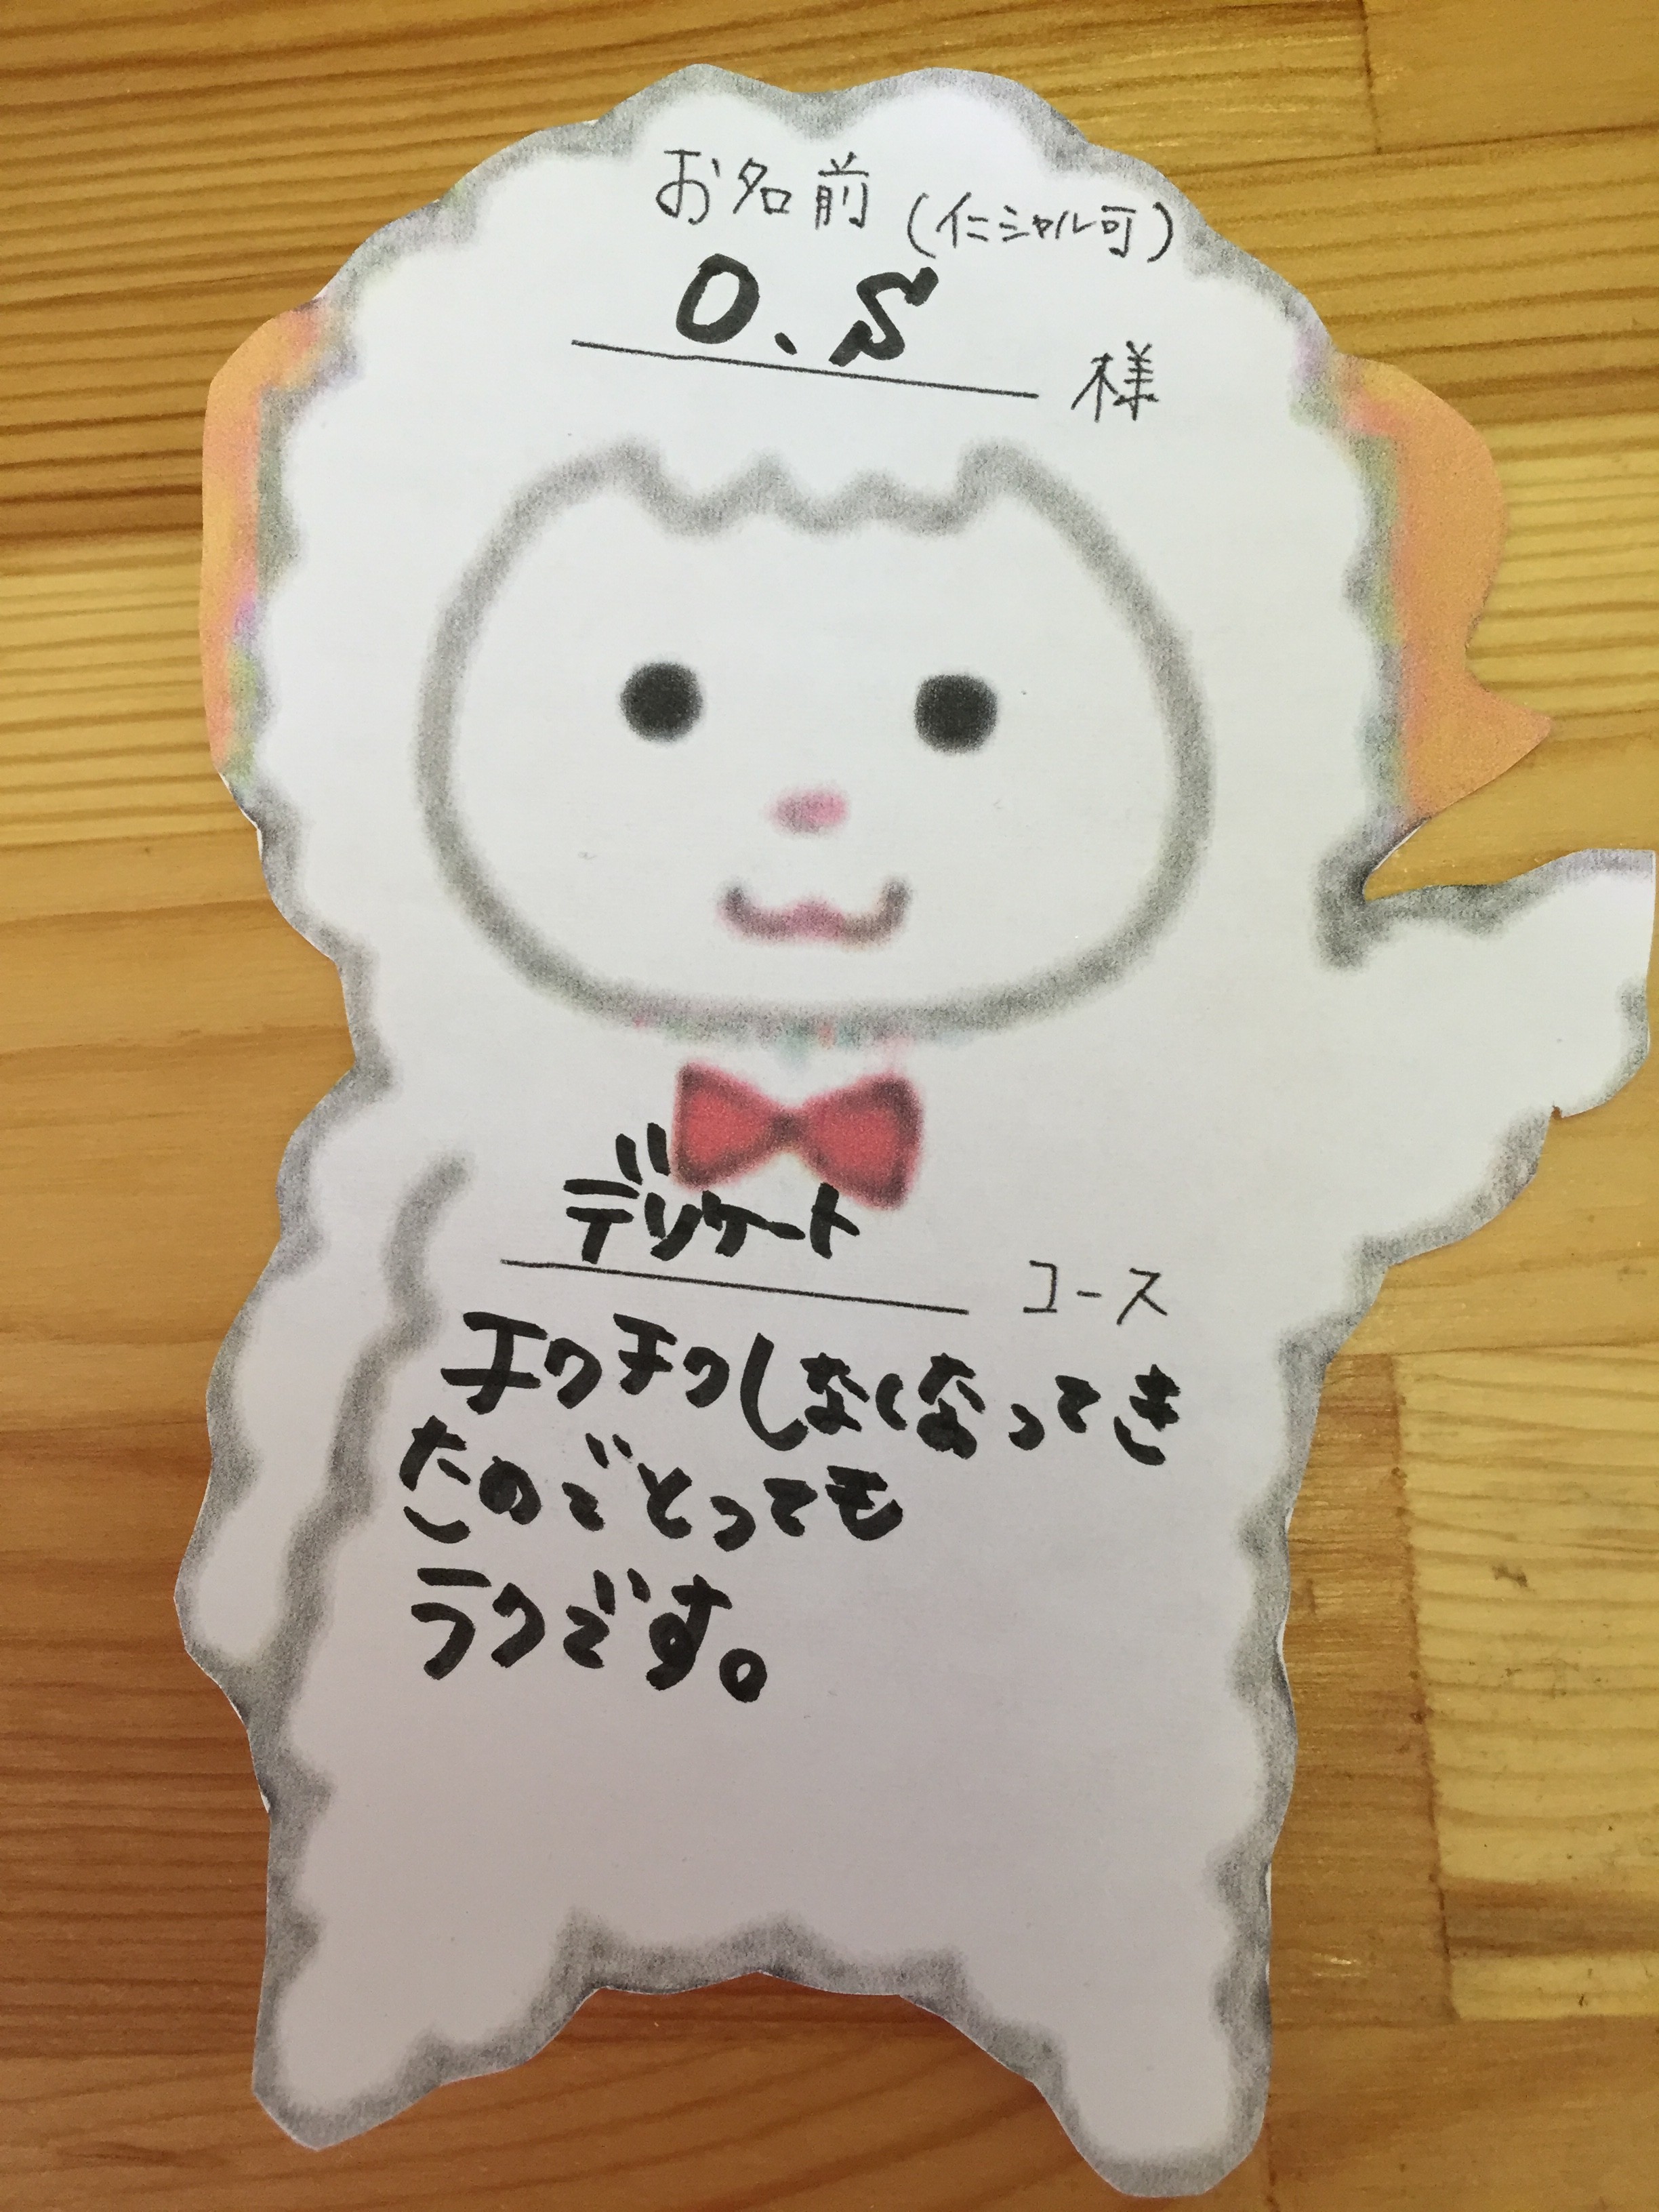 お名前 (イニシャル可)
O.S 様
デリケート コース
チクチクしなくなってき
たのでとっても
ラクです。